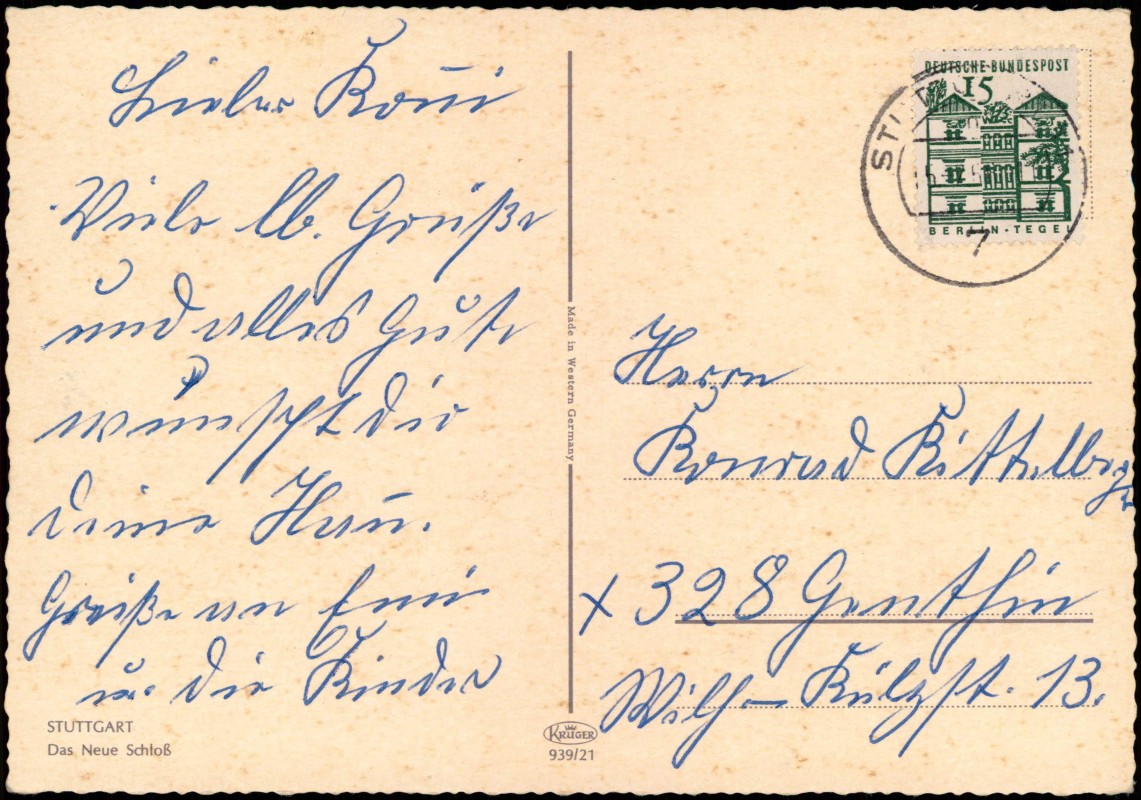 Lieber Koni
Viele lb. Grüße
und alles Gute
wünscht dir
deine
Grüße an
u. die Kinder
STUTTGART
Das Neue Schloß
Made in Western Germany
KRÜGER
939/21
DEUTSCHE BUNDESPOST
15
BERLIN-TEGEL
7
Herrn
Konrad Kittelberger
x 328 Genthin
Wilh-Külzst. 13.